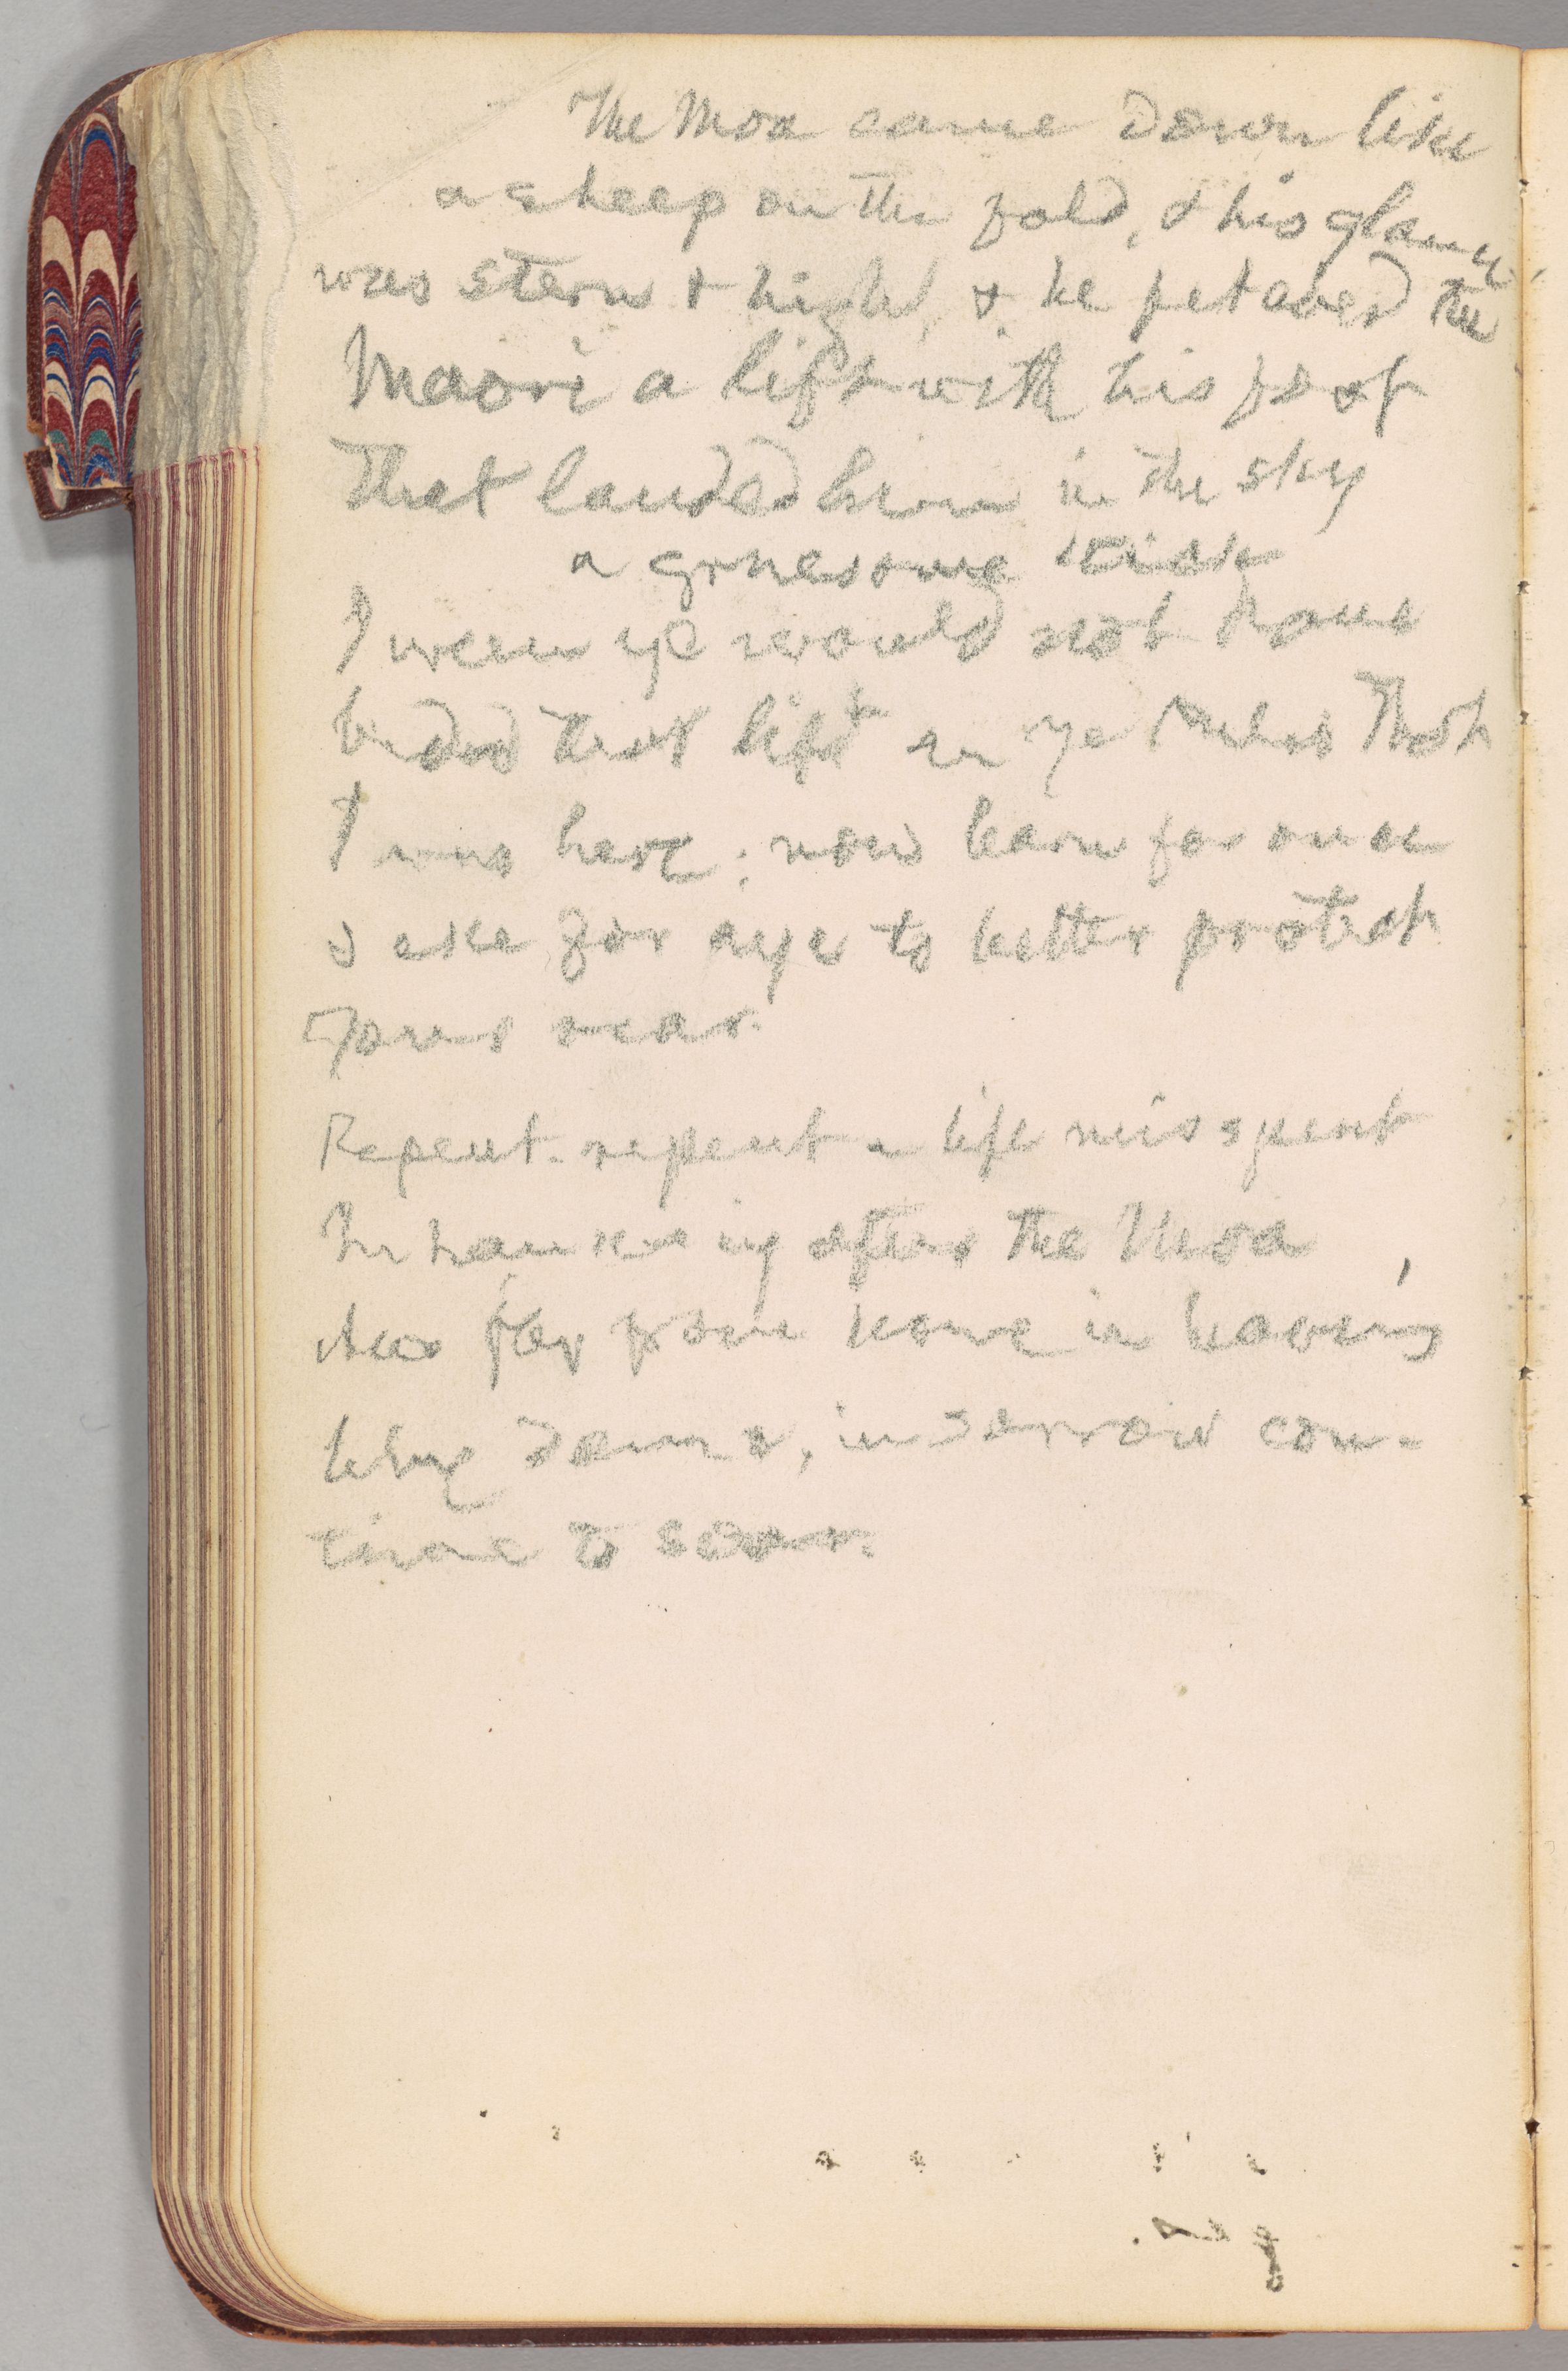 The Moa came down like
a sheep on the fold, & his glance
was stern & high, & he fetched the
Maori a lift with his foot
That landed him in the sky
a gruesome
I ween ye would not have
bided that lift an ye that
I was here; now learn for once
& eke for aye to better protect
Your rear.
Repent - repent a life misspent
In hankering after the Moa,
from home in
why in sorrow con-
tinue to